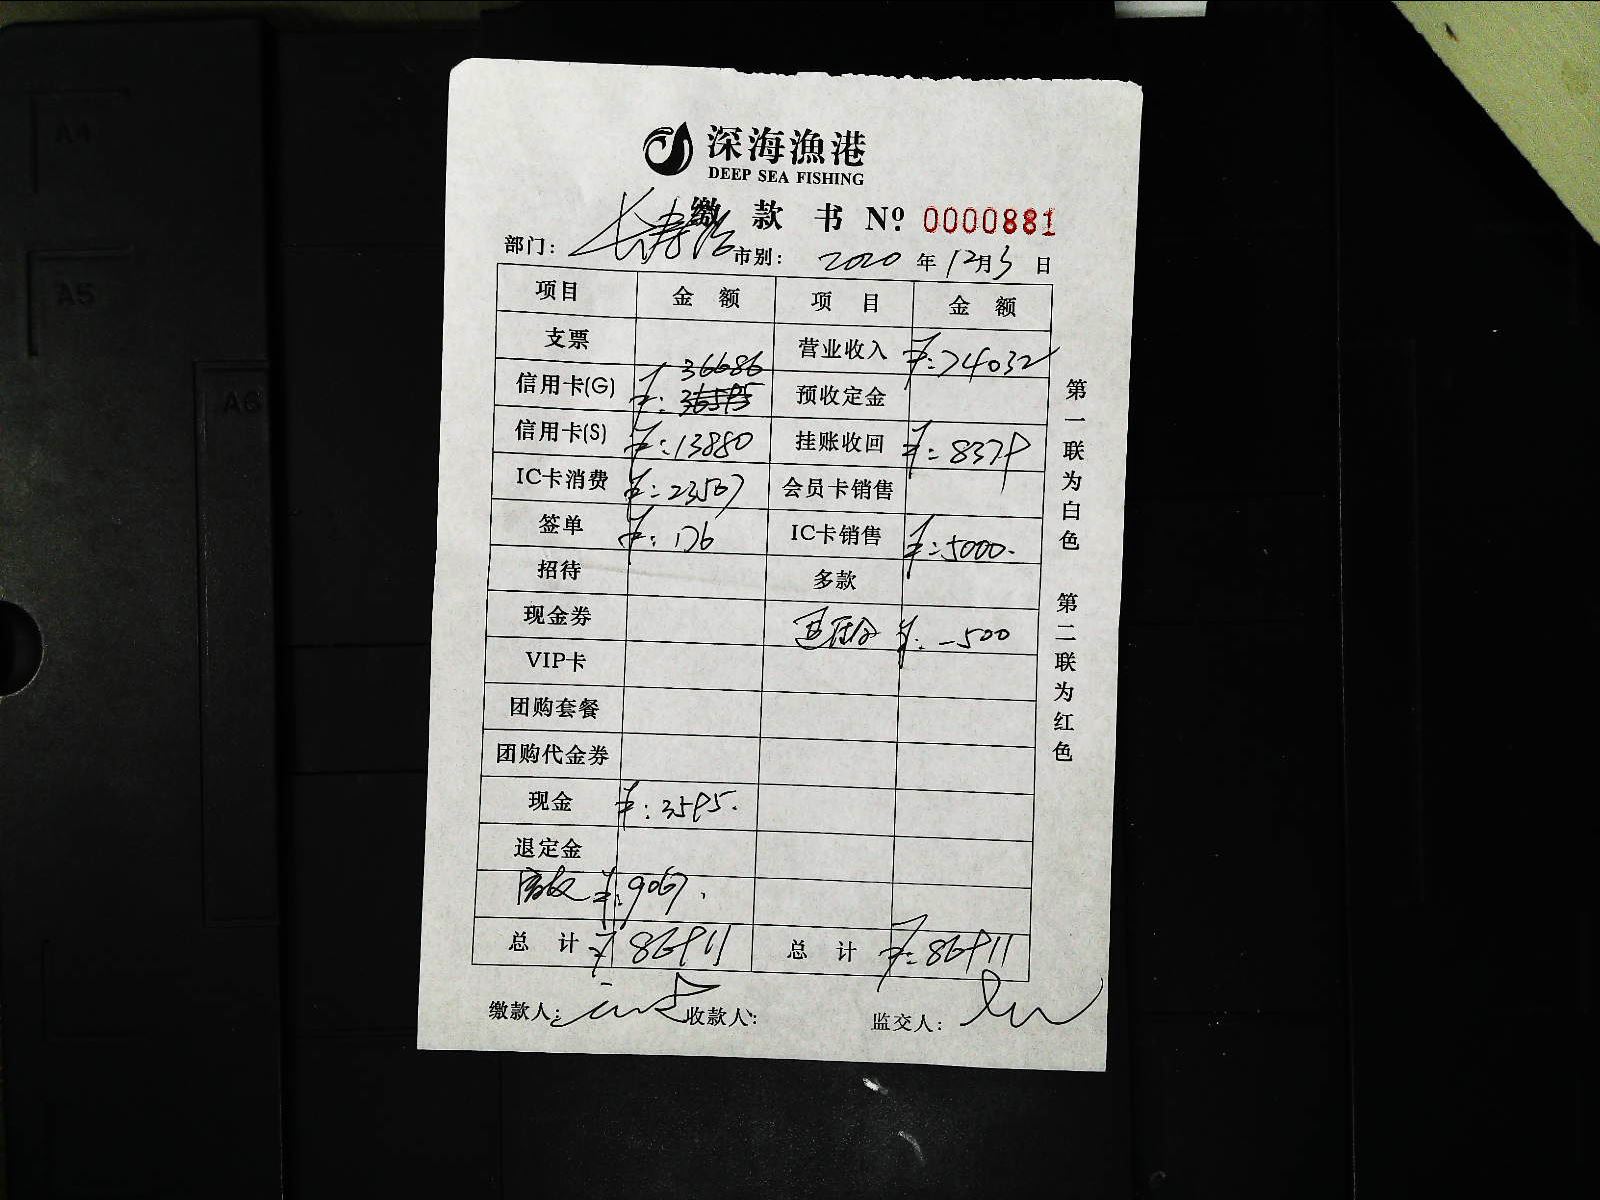 A4
A5
A6
深海漁港
DEEP SEA FISHING
缴 款 书 Nº 0000881
部门: 长寿路 市别: 2020 年 12月3日
项目 金 额 项 目 金 额
支票 营业收入 ¥:74032
信用卡(G) ¥: 36686 预收定金
信用卡(S) ¥:13880 挂账收回 ¥:8379
IC卡消费 ¥:23507 会员卡销售
签单 ¥:176 IC卡销售 ¥:5000.
招待 多款
现金券 退定金 ¥:-500
VIP卡
团购套餐
团购代金券
现金 ¥:3595.
退定金
¥:9067.
总 计 ¥ 86911 总 计 ¥:86911
缴款人: 收款人: 监交人:
第一联为白色 第二联为红色